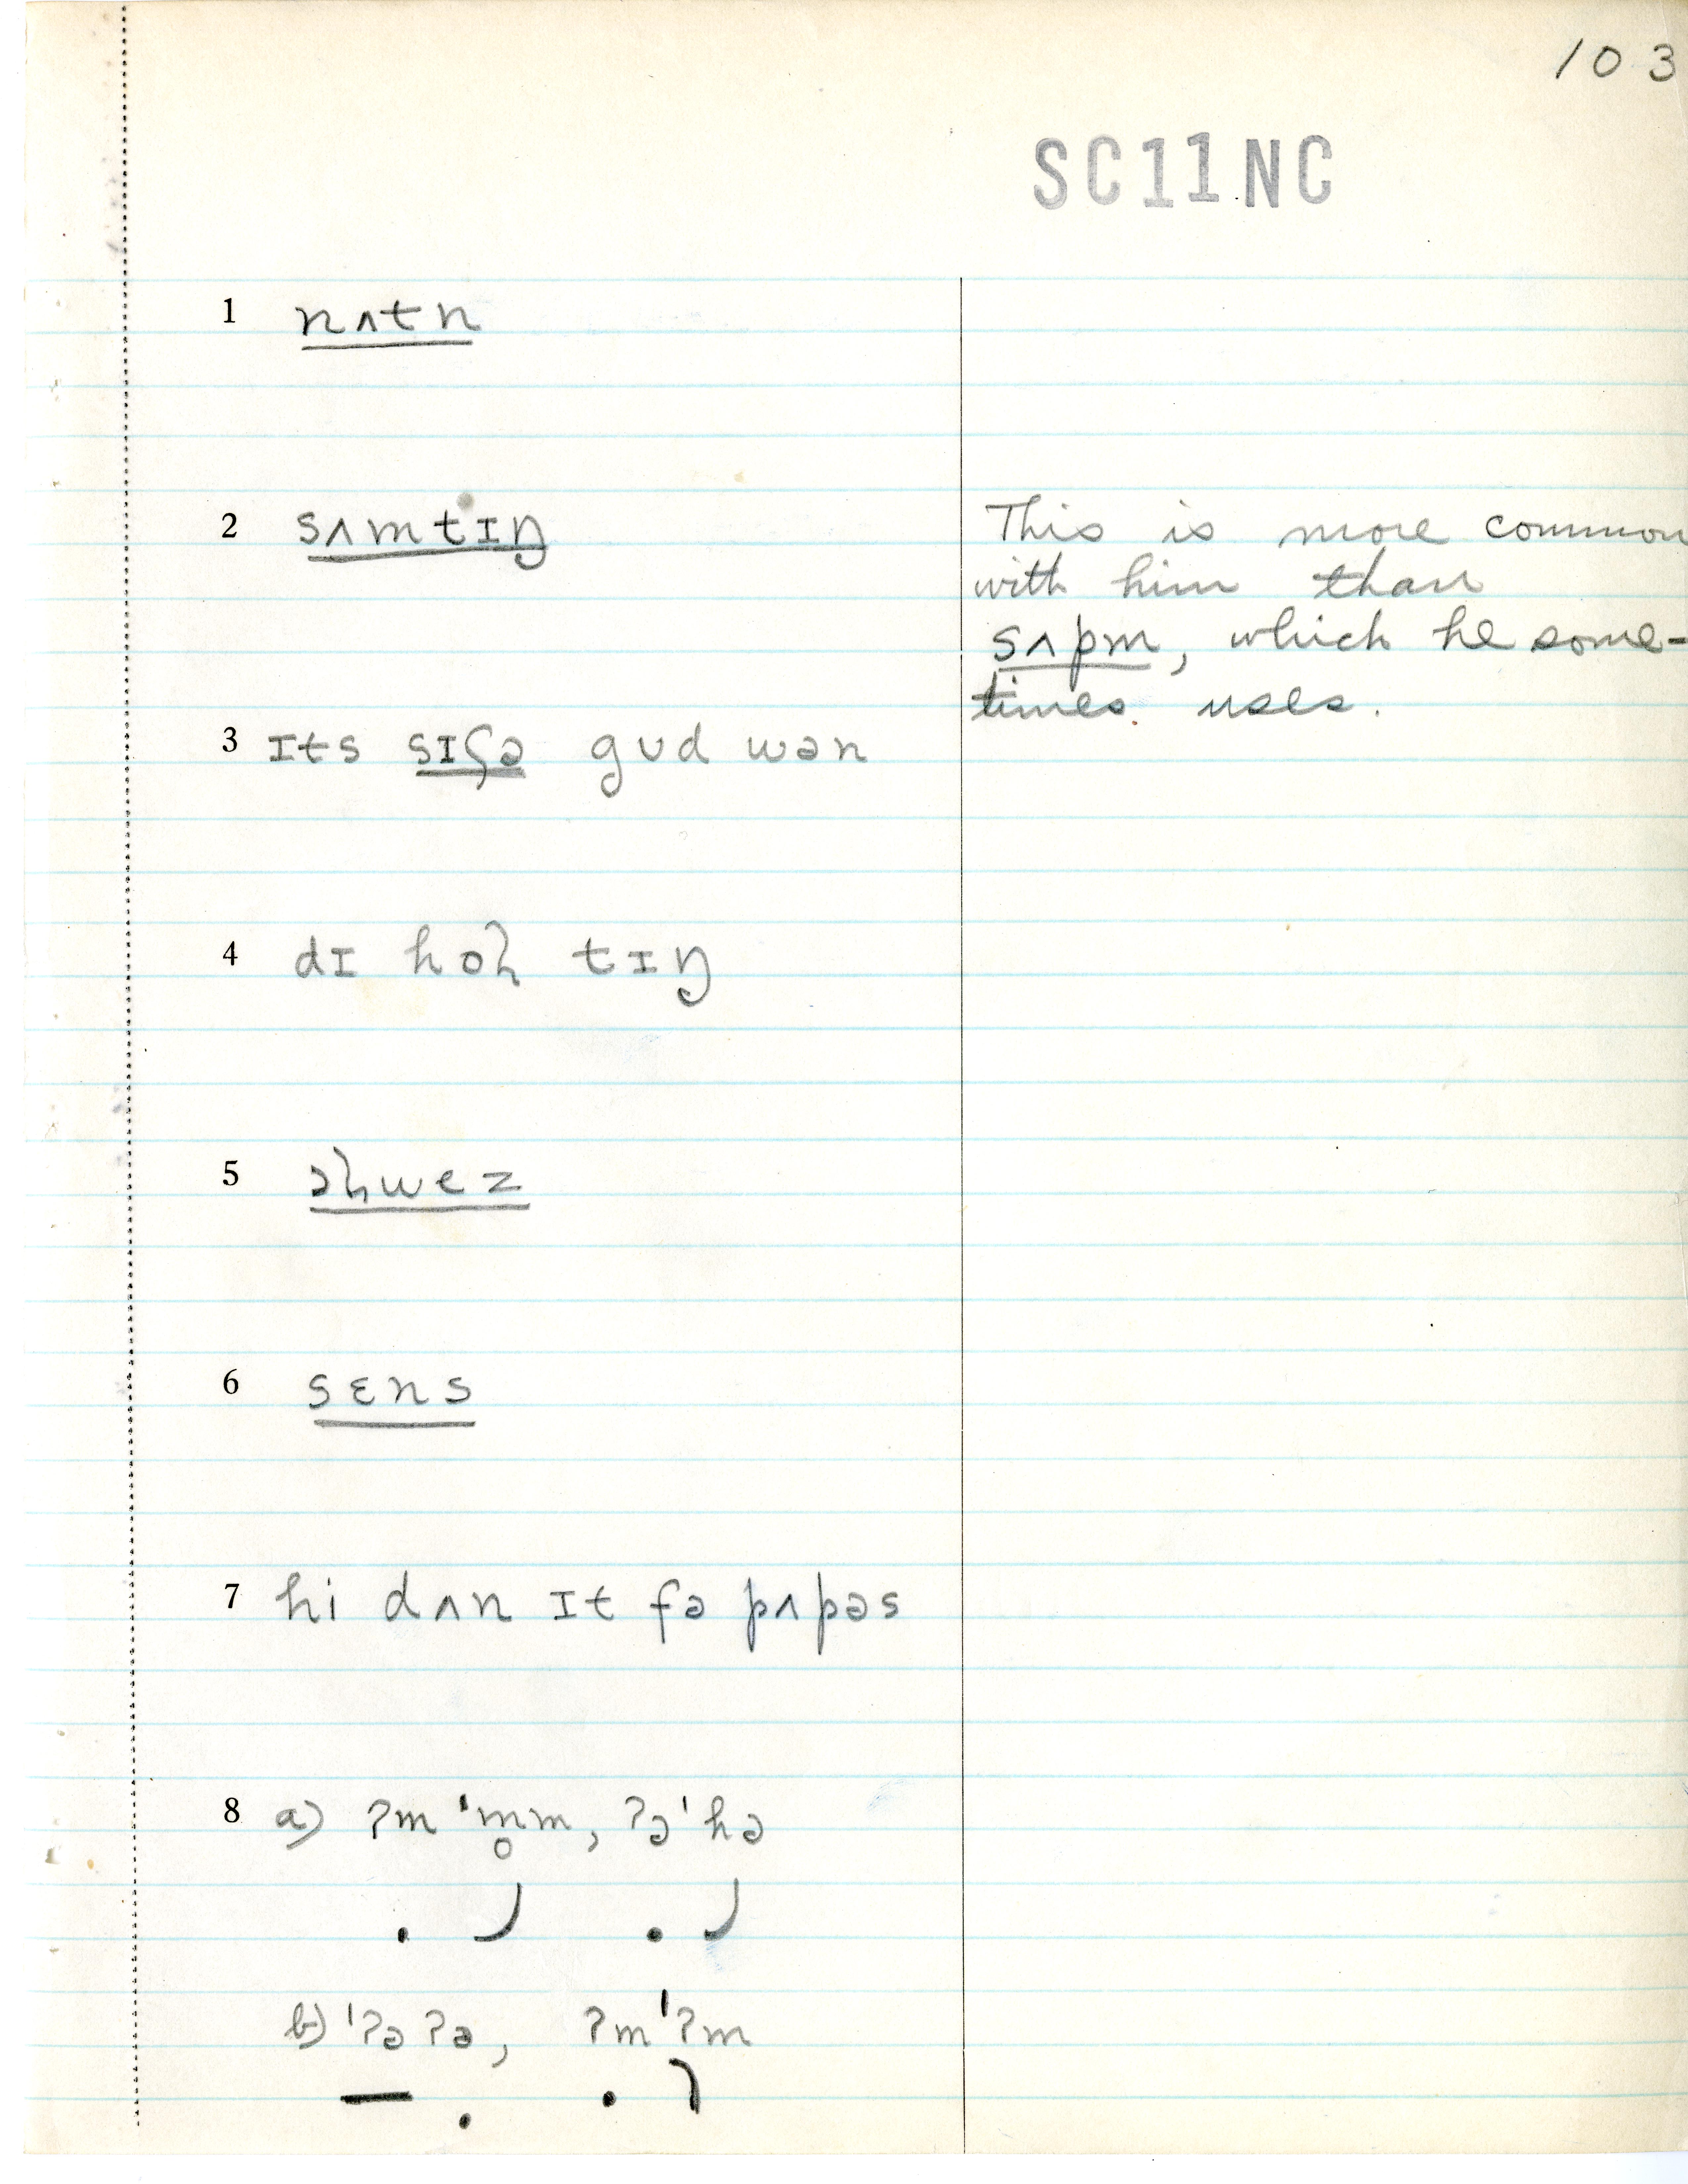 103
SC11NC
1 nʌtn
2 sʌmtɪŋ
This is more common
with him than
sʌpm, which he some-
times uses.
3 ɪts sɪʕə gud wən
4 dɪ hoɦ tɪŋ
5 ɔɦwez
6 sɛns
7 hi dʌn ɪt fə pʌpəs
8 a) ʔm 'm̥m, ʔə'hə
b) 'ʔəʔə, ʔm'ʔm